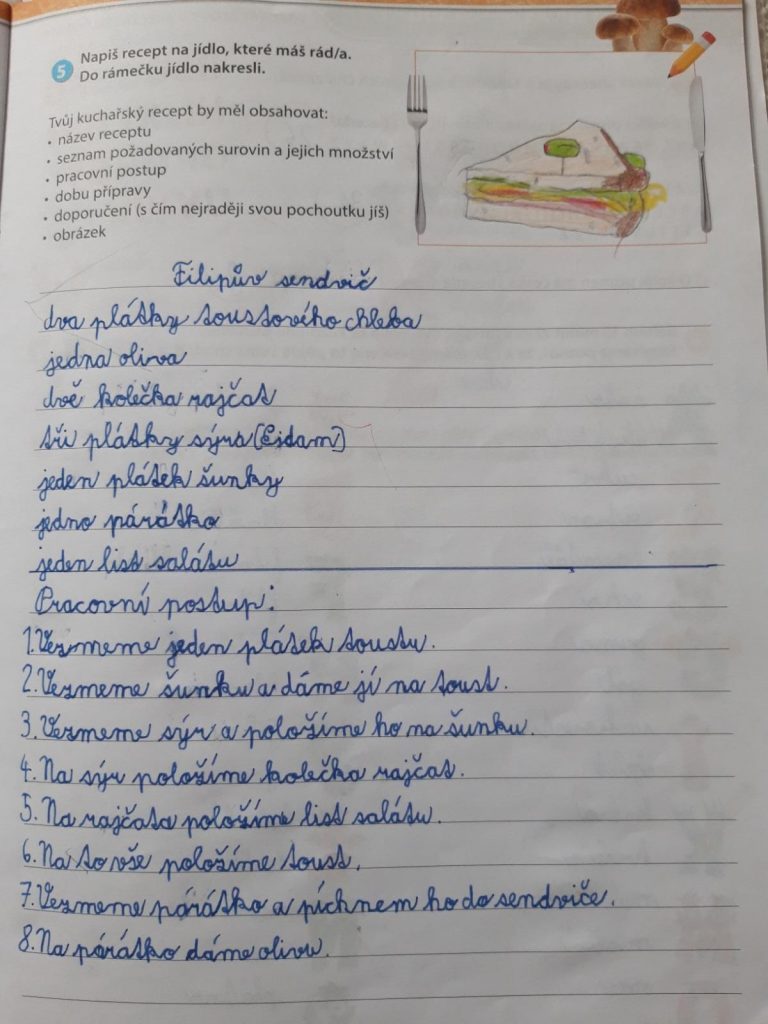 5 Napiš recept na jídlo, které máš rád/a.
Do rámečku jídlo nakresli.
Tvůj kuchařský recept by měl obsahovat:
• název receptu
• seznam požadovaných surovin a jejich množství
• pracovní postup
• dobu přípravy
• doporučení (s čím nejraději svou pochoutku jíš)
• obrázek
Filipův sendvič
dva plátky toustového chleba
jedna oliva
dvě kolečka rajčat
tři plátky sýra (Eidam)
jeden plátek šunky
jedno párátko
jeden list salátu
Pracovní postup:
1. Vezmeme jeden plátek toustu.
2. Vezmeme šunku a dáme jí na toust.
3. Vezmeme sýr a položíme ho na šunku.
4. Na sýr položíme kolečka rajčat.
5. Na rajčata položíme list salátu.
6. Na to vše položíme toust.
7. Vezmeme párátko a píchnem ho do sendviče.
8. Na párátko dáme olivu.